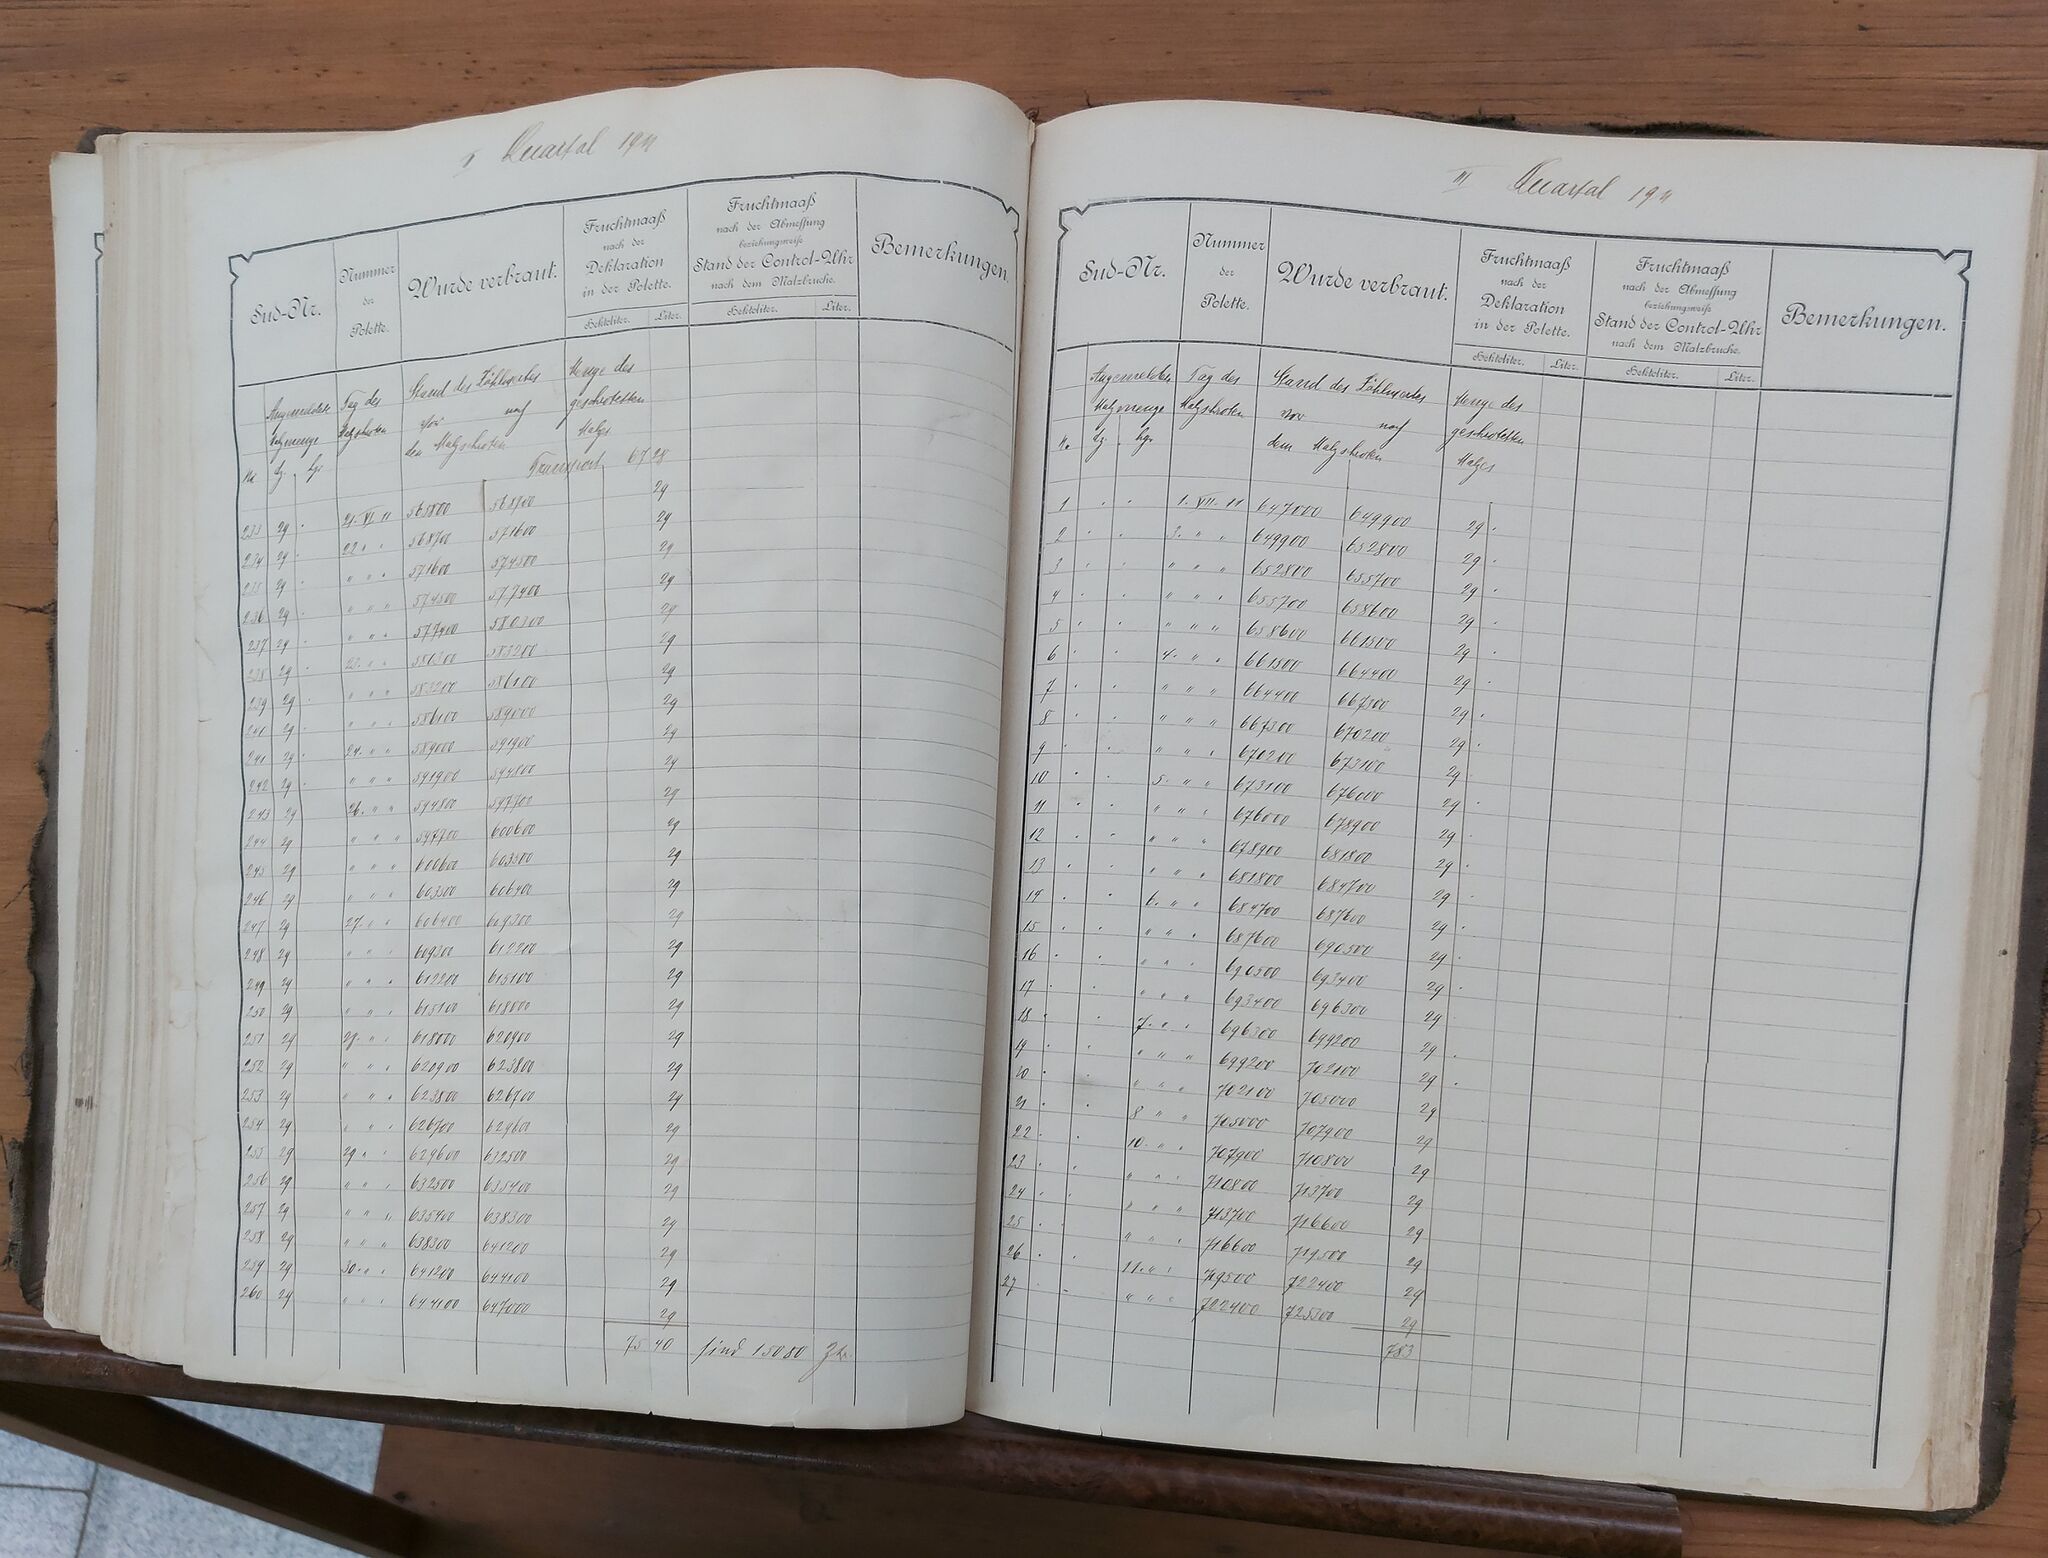 Quartal 1911
Sud-Nr.
Nummer
der
Polette.
Wurde verbraut.
Fruchtmaaß
nach der
Deklaration
in der Polette.
Hektoliter. Liter.
Fruchtmaaß
nach der Abmessung
beziehungsweise
Stand der Control-Uhr
nach dem Malzbruche.
Hektoliter. Liter.
Bemerkungen.
Angemeldete Tag des Stand des Zählwertes Menge des
Malzmenge Malzschroten vor nach geschroteten
den Malzschroten Malzes
No
Transport 67 28
233 29 21. VI 11 565800 568700 29
234 29 22 " " 568700 571600 29
235 29 " " " 571600 574500 29
236 29 " " " 574500 577400 29
237 29 " " " 577400 580300 29
238 29 23. " " 580300 583200 29
239 29 " " " 583200 586100 29
240 29 " " " 586100 589000 29
241 29 24. " " 589000 591900 29
242 29 " " " 591900 594800 29
243 29 26. " " 594800 597700 29
244 29 " " " 597700 600600 29
245 29 " " " 600600 603500 29
246 29 " " " 603500 606400 29
247 29 27. " " 606400 609300 29
248 29 " " " 609300 612200 29
249 29 " " " 612200 615100 29
250 29 " " " 615100 618000 29
251 29 " " 618000 620900 29
252 29 " " " 620900 623800 29
253 29 " " " 623800 626700 29
254 29 " " " 626700 629600 29
255 29 29 " " 629600 632500 29
256 29 " " " 632500 635400 29
257 29 " " " 635400 638300 29
258 29 " " " 638300 641200 29
259 29 30. " " 641200 644100 29
260 29 " " " 644100 647000 29
75 40 sind 15080 Ztr.
III Quartal 1911
Sud-Nr.
Nummer
der
Polette.
Wurde verbraut.
Fruchtmaaß
nach der
Deklaration
in der Polette.
Hektoliter. Liter.
Fruchtmaaß
nach der Abmessung
beziehungsweise
Stand der Control-Uhr
nach dem Malzbruche.
Hektoliter. Liter.
Bemerkungen.
Angemeldete Tag des Stand des Zählwertes Menge des
Malzmenge Malzschroten vor nach geschroteten
No. dem Malzschroten Malzes
1 " " 1. VII. 11 647000 649900 29
2 " " 3. " " 649900 652800 29
3 " " " " " 652800 655700 29
4 " " " " " 655700 658600 29
5 " " " " " 658600 661500 29
6 " " 4. " " 661500 664400 29
7 " " " " " 664400 667300 29
8 " " " " " 667300 670200 29
9 " " " " " 670200 673100 29
10 " " 5. " " 673100 676000 29
11 " " " " " 676000 678900 29
12 " " " " " 678900 681800 29
13 " " " " " 681800 684700 29
14 " " 6. " " 684700 687600 29
15 " " " " " 687600 690500 29
16 " " " " " 690500 693400 29
17 " " " " " 693400 696300 29
18 " " 7. " " 696300 699200 29
19 " " " " " 699200 702100 29
20 " " " " " 702100 705000 29
21 " " 8 " " 705000 707900 29
22 " " 10. " " 707900 710800 29
23 " " " " " 710800 713700 29
24 " " " " " 713700 716600 29
25 " " " " " 716600 719500 29
26 " " 11. " " 719500 722400 29
27 " " " " " 722400 725300 29
783